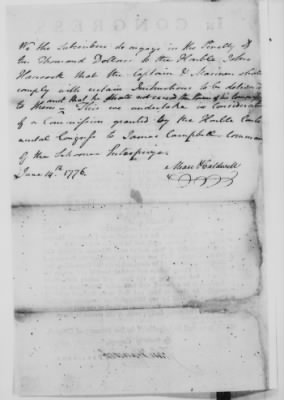 We the Subscribers do engage in the Penalty of
Ten Thousand Dollars to the Honble John
Hancock that the Captain & Mariners shall
comply with certain Instructions to be delivered
and that he shall not exceed the
to them. This we undertake in Consideration
of a Commission granted by the Honble Conti
nental Congress to James Campbell Comman
of the Schooner Enterprize
June 14th 1776
Caldwell